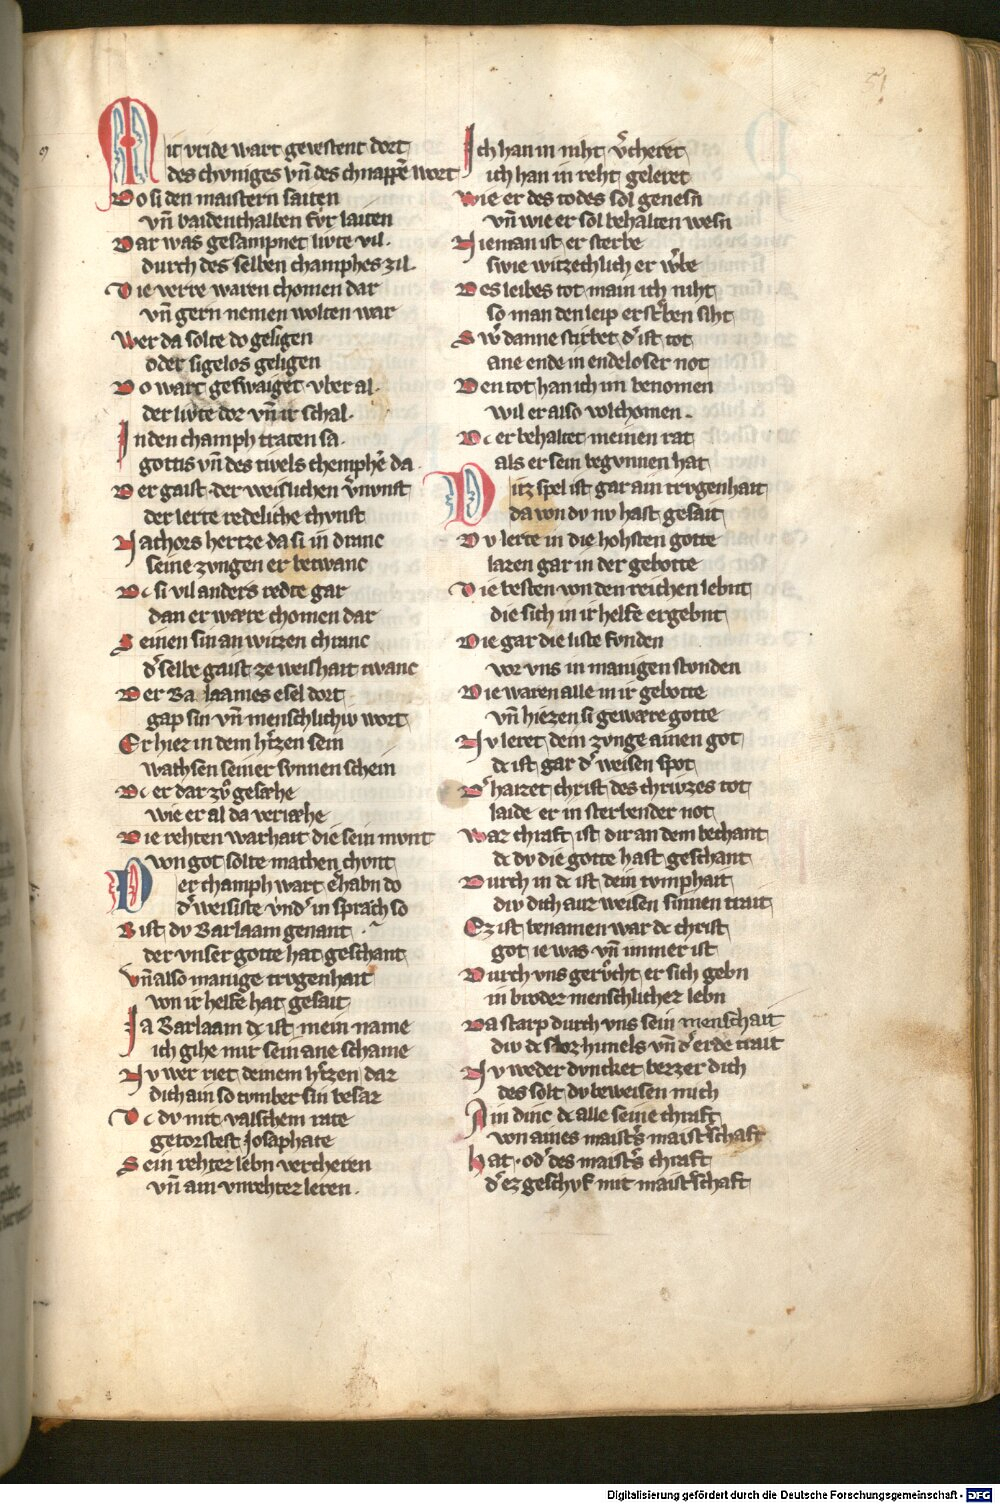 51
Mit vride wart gevestent dort
des chvniges vn̄ des chnappē wort
Do si den maistern saiten
vn̄ baidenthalben fvͤr laiten
Dar was gesampnet livte vil.
durch des selben champhes zil.
Die verre waren chomen dar
vn̄ gern nemen wolten war
Wer da solte do geligen
oder sigelos geligen
Do wart geswaiget vber al.
der livte doz vn̄ ir schal.
In den champh traten sa.
gottis vn̄ des tivels chemphē da.
Der gaist. der weislichen v̓nvnst
der lerte redeliche chvnst
Nachors hertze da si in dranc
seine zvngen er betwanc
Dc si vil anders redte gar
dan er wære chomen dar
Seinen sin an witzen chranc
d̓ selbe gaist ze weishait twanc
Der Balaames esel dort
gap sin vn̄ menschlichiv wort
Er hiez in dem h̓tzen sein
wachsen seiner synnen schein
Dc er dar zvͦ gesæhe
wie er al da veriæhe
Die rehten warhait die sein mvnt
von got solte machen chvnt
Der champh wart erhabn do
d̓ weisiste vnd̓ in sprach so
Bist dv Barlaam genant.
der vnser gotte hat geschant
vn̄ also manige trvgenhait
von ir helfe hat gesait
Ja Barlaam dc ist mein name
ich gihe mit sein ane schame
Nv wer riet deinem h̓tzen daz
dich ain so tvmber sin besaz
Dc dv mit valschem rate
getorstest Josaphate
Sein rehtez lebn vercheren
vn̄ ain vnrehtez leren.
Ich han in niht v̓cheret
ich han in reht geleret
Wie er des todes sol genesn
vn̄ wie er sol behalten wesn
Nieman ist er sterbe
swie witzechlich er w̓be
Des leibes tot main ich niht
so man den leip erst̓ben siht
Sw̓ danne stirbet d̓ ist tot
ane ende in endeloser not
Den tot han ich im benomen
wil er also volchomen.
Dc er behaltet meinen rat
als er sein begvnnen hat
Ditz spel ist gar ain trvgenhait
da von dv nv hast gesait
Dv lerte in die hohsten gotte
lazen gar in der gebotte
Die besten von den reichen lebnt
die sich in ir helfe ergebnt
Die gar die liste fvnden
vor vns in manigen stvnden
Die waren alle in ir gebotte
vn̄ hiezen si gewære gotte
Nv leret dein zvnge ainen got
dc ist gar d̓ weisen spot
D̓ haizet christ des chrivzes tot
laide er in sterbender not
Waz chraft ist dir an dem bechant
dc dv die gotte hast geschant
Durch in dc ist dein tvmphait
div dich avz weisen sinnen trait
Ez ist benamen war dc christ
got ie was vn̄ immer ist
Durch vns gervͦcht er sich gebn
in broder menschlicher lebn
Da starp durch vns sein menschait
div dc sloz himels vn̄ d̓ erde trait
Nv weder dvncket bezzer dich
des solt dv beweisen mich
Ain dinc dc alle seine chraft
von aines maist̓s maist̓schaft
hat. od̓ des maist̓s chraft
d̓ ez geschvf mit maist̓schaft
Digitalisierung gefördert durch die Deutsche Forschungsgemeinschaft - DFG